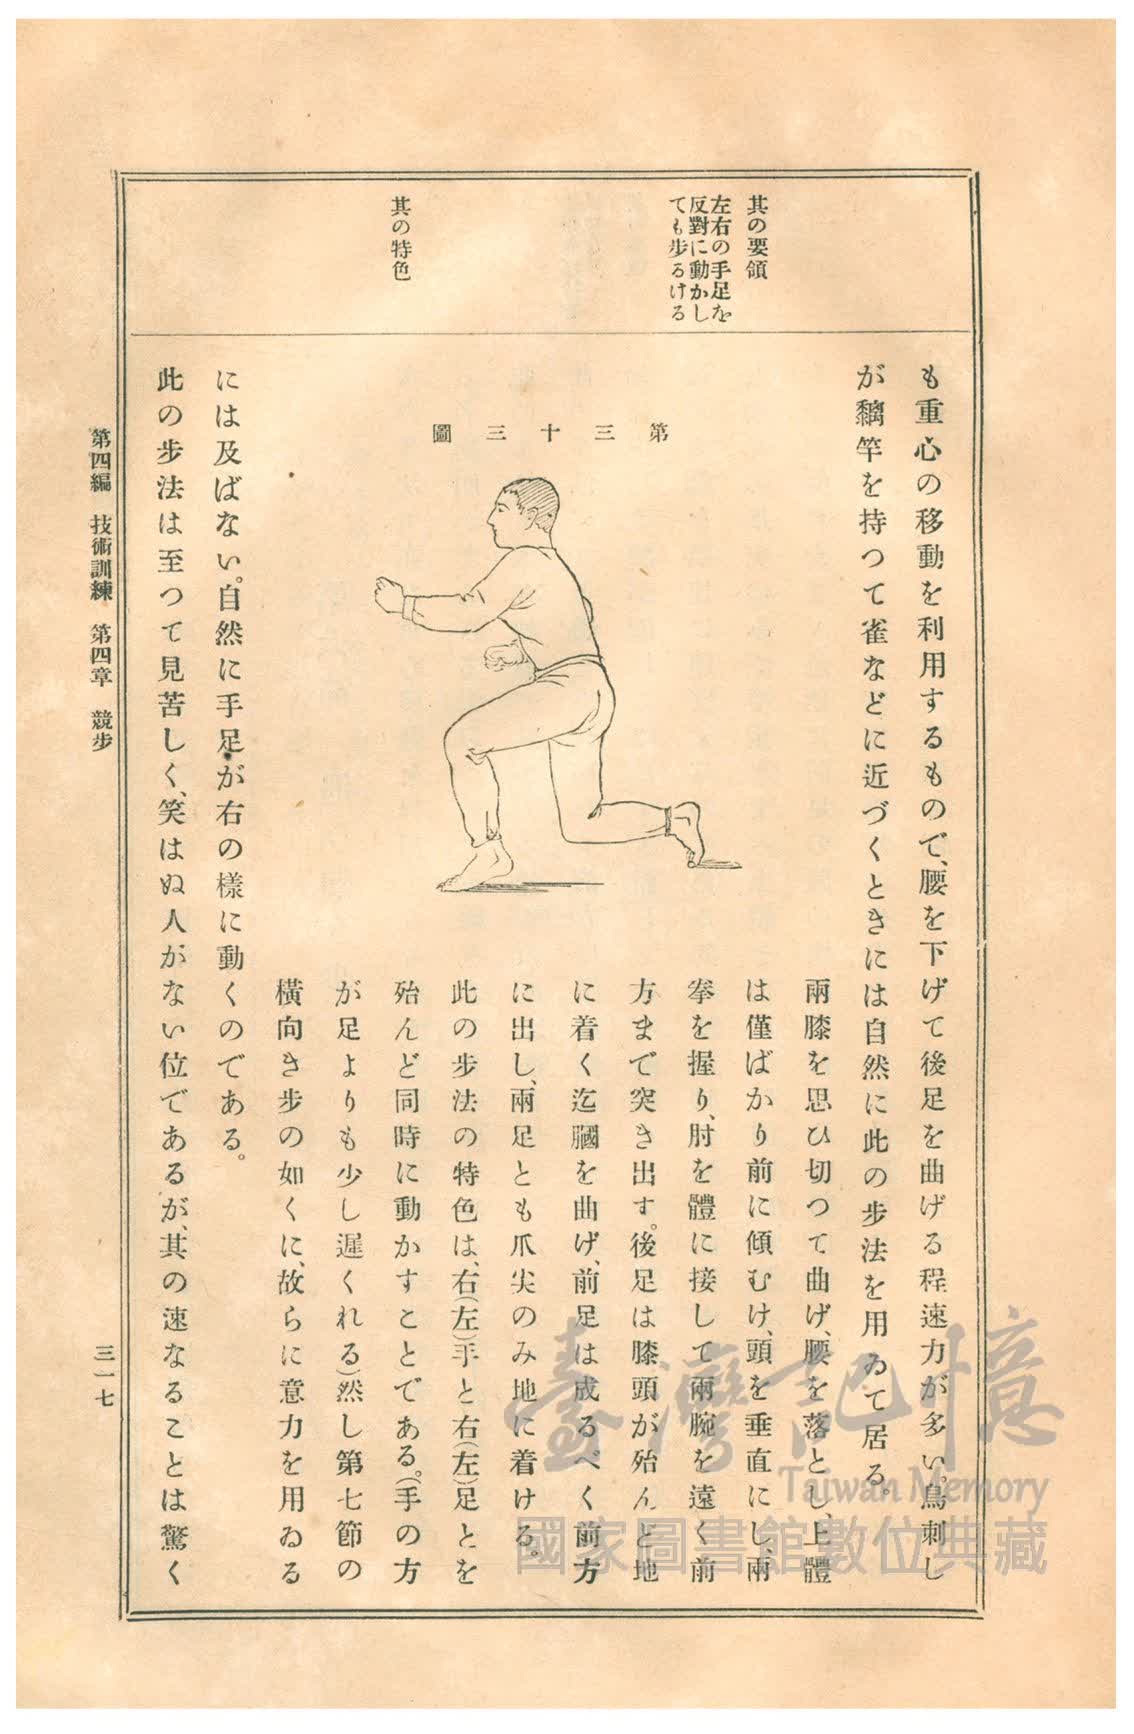 其の要領
左右の手足を
反對に動かし
ても步るける
其の特色
も重心の移動を利用するもので、腰を下げて後足を曲げる程速力が多い。鳥刺し
が黐竿を持つて雀などに近づくときには自然に此の步法を用ゐて居る。
第三十三圖
兩膝を思ひ切つて曲げ、腰を落とし、上體
は僅ばかり前に傾むけ、頭を垂直にし、兩
拳を握り、肘を體に接して兩腕を遠く前
方まで突き出す。後足は膝頭が殆んど地
に着く迄膕を曲げ、前足は成るべく前方
に出し、兩足とも爪尖のみ地に着ける。
此の步法の特色は、右(左)手と右(左)足とを
殆んど同時に動かすことである。(手の方
が足よりも少し遲くれる)然し第七節の
橫向き步の如くに、故らに意力を用ゐる
には及ばない。自然に手足が右の樣に動くのである。
此の步法は至つて見苦しく、笑はぬ人がない位であるが、其の速なることは驚く
第四編　技術訓練　第四章　競步
三一七
臺灣記憶
Taiwan Memory
國家圖書館數位典藏